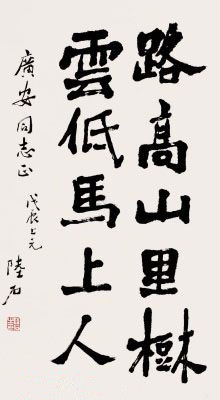 路高山里樹
雲低馬上人
廣安同志正
戊辰上元 陸石